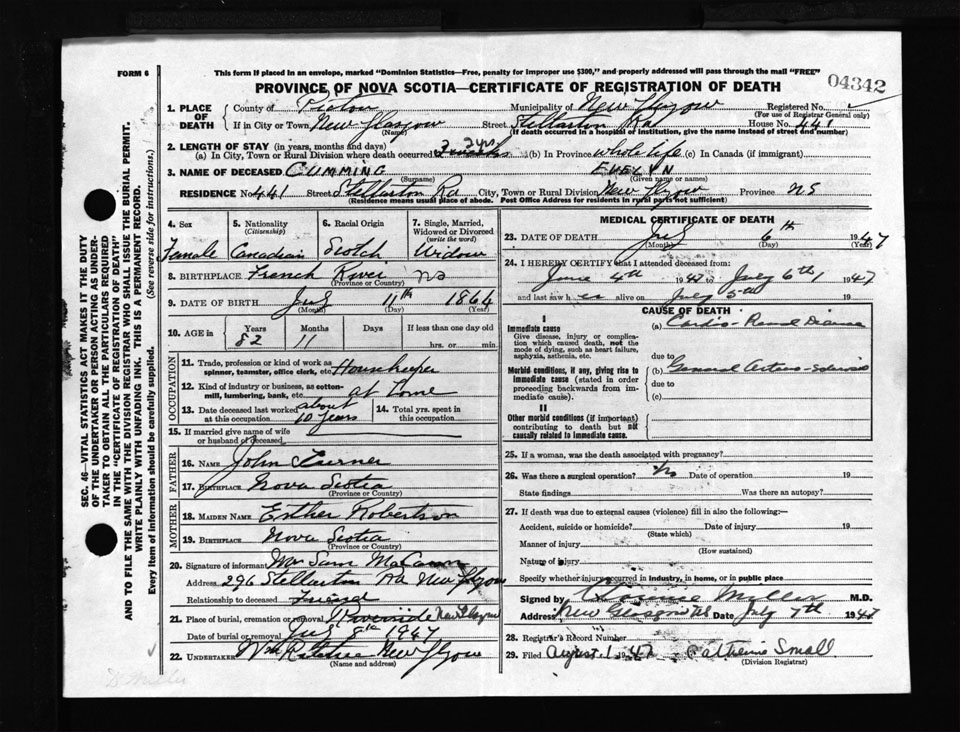 FORM 6
This form if placed in an envelope, marked "Dominion Statistics—Free, penalty for improper use $300," and properly addressed will pass through the mail "FREE"
04342
PROVINCE OF NOVA SCOTIA—CERTIFICATE OF REGISTRATION OF DEATH
1. PLACE OF DEATH
County of Pictou Municipality of New Glasgow Registered No.
(For use of Registrar General only)
If in City or Town New Glasgow Street Stellarton Rd House No. 441
(Name) (If death occurred in a hospital or institution, give the name instead of street and number)
2. LENGTH OF STAY (in years, months and days)
(a) In City, Town or Rural Division where death occurred 2 yrs (b) In Province whole life (c) In Canada (if immigrant)
3. NAME OF DECEASED CUMMING EVELYN
(Surname) (Given name or names)
RESIDENCE No. 441 Street Stellarton Rd City, Town or Rural Division New Glasgow Province NS
(Residence means usual place of abode. Post Office Address for residents in rural parts not sufficient)
4. Sex 5. Nationality (Citizenship) 6. Racial Origin 7. Single, Married, Widowed or Divorced (write the word)
Female Canadian Scotch Widow
8. BIRTHPLACE French River NS
(Province or Country)
9. DATE OF BIRTH July 11th 1864
(Month) (Day) (Year)
10. AGE in Years Months Days If less than one day old
82 11 hrs. or min.
OCCUPATION
11. Trade, profession or kind of work as spinner, teamster, office clerk, etc. Housekeeper
12. Kind of industry or business, as cotton-mill, lumbering, bank, etc. at Home
13. Date deceased last worked at this occupation about 10 years 14. Total yrs. spent in this occupation
15. If married give name of wife or husband of deceased
FATHER
16. NAME John Turner
17. BIRTHPLACE Nova Scotia
(Province or Country)
MOTHER
18. MAIDEN NAME Esther Robertson
19. BIRTHPLACE Nova Scotia
(Province or Country)
20. Signature of informant Mrs Sam
Address 296 Stellarton Rd New Glasgow
Relationship to deceased Friend
21. Place of burial, cremation or removal Riverside New Glasgow
Date of burial or removal July 8th 1947
22. UNDERTAKER Wm Ritchie New Glasgow
(Name and address)
MEDICAL CERTIFICATE OF DEATH
23. DATE OF DEATH July 6th 1947
(Month) (Day) (Year)
24. I HEREBY CERTIFY that I attended deceased from:
June 4th 1947 to July 6th 1947
and last saw her alive on July 5th 19
CAUSE OF DEATH
I
Immediate cause
Give disease, injury or complication which caused death, not the mode of dying, such as heart failure, asphyxia, asthenia, etc.
(a) Cardio-Renal Disease
due to
Morbid conditions, if any, giving rise to immediate cause (stated in order proceeding backwards from immediate cause).
(b) General Arterio-Sclerosis
due to
(c)
II
Other morbid conditions (if important) contributing to death but not causally related to immediate cause.
25. If a woman, was the death associated with pregnancy?
26. Was there a surgical operation? No Date of operation 19
State findings Was there an autopsy?
27. If death was due to external causes (violence) fill in also the following:—
Accident, suicide or homicide? Date of injury 19
(State which)
Manner of injury
(How sustained)
Nature of injury
Specify whether injury occurred in industry, in home, or in public place
Signed by Miller M.D.
Address New Glasgow NS Date July 7th 1947
28. Registrar's Record Number
29. Filed August 1 1947 Catherine Small
(Division Registrar)
SEC. 46—VITAL STATISTICS ACT MAKES IT THE DUTY
OF THE UNDERTAKER OR PERSON ACTING AS UNDER-
TAKER TO OBTAIN ALL THE PARTICULARS REQUIRED
IN THE "CERTIFICATE OF REGISTRATION OF DEATH"
AND TO FILE THE SAME WITH THE DIVISION REGISTRAR WHO SHALL ISSUE THE BURIAL PERMIT.
WRITE PLAINLY WITH UNFADING INK. THIS IS A PERMANENT RECORD.
Every item of information should be carefully supplied. (See reverse side for instructions.)